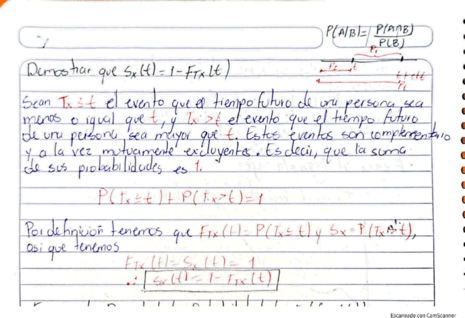 P(A|B)= P(A∩B)
P(B)
Demostrar que Sx(t)=1-FTx(t)
Sean Tx≤t el evento que el tiempo futuro de una persona sea
menos o igual que t, y Tx>t el evento que el tiempo futuro
de una persona sea mayor que t. Estos eventos son complementario
y a la vez mutuamente excluyentes. Es decir, que la suma
de sus probabilidades es 1.
P(Tx≤t)+P(Tx>t)=1
Por definición tenemos que FTx(t)=P(Tx≤t) y Sx=P(Tx>t),
asi que tenemos
FTx(t)=Sx(t)=1
∴ Sx(t)=1-FTx(t)
Escaneado con CamScanner